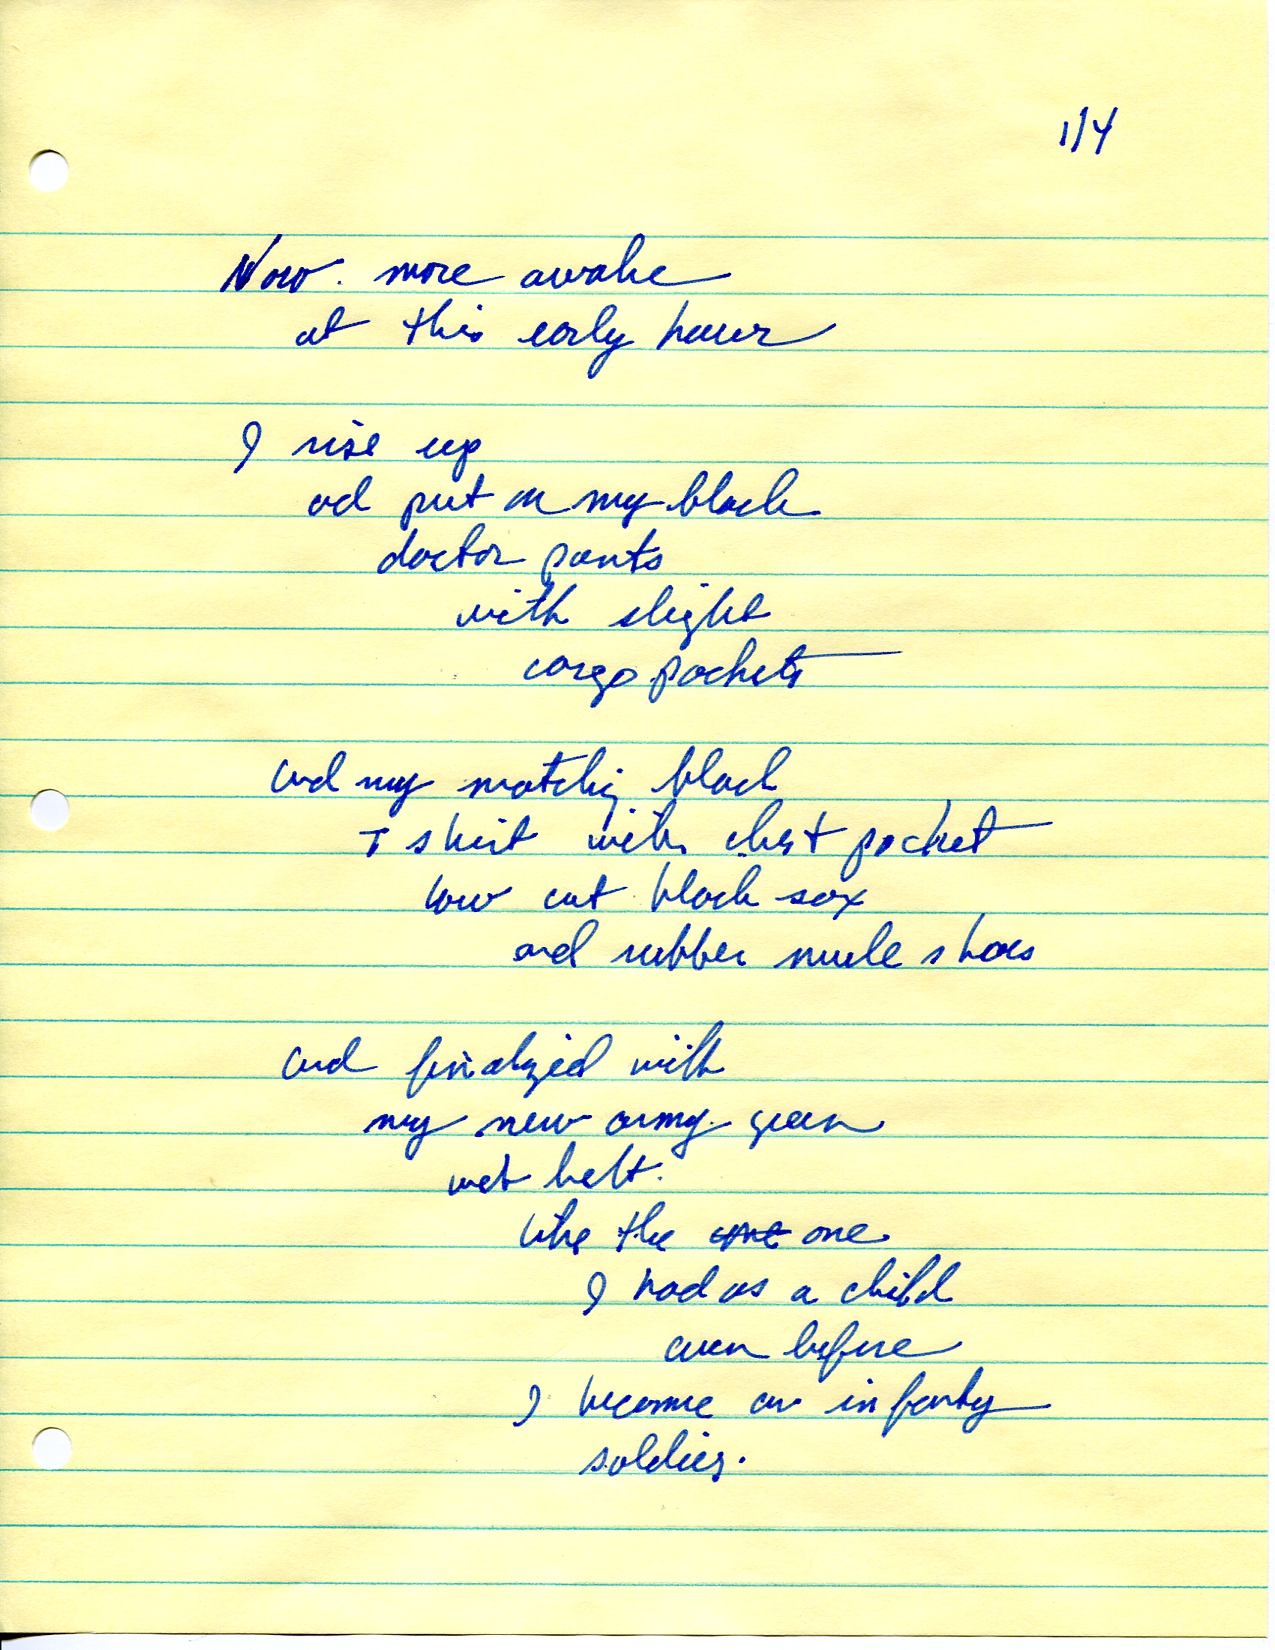 1/4
Now. more awake
at this early hour
I rise up
ad put on my black
doctor pants
with slight
cargo pockets
and my matchig black
T shirt with chest pocket
low cut black sox
and rubber mule shoes
and finalized with
my new army green
web belt.
like the one
I had as a child
even before
I became an infantry
soldier.